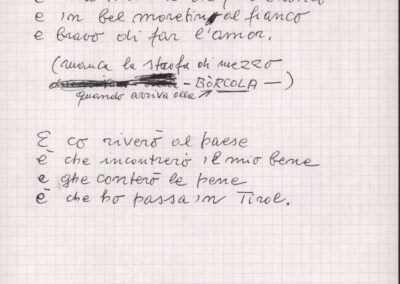 e in bel moretin al fianco
e bravo di far l'amor.
(manca la strofa di mezzo
- BÒRCOLA -)
quando arriva alla
E co riverò al paese
e che incontrerò il mio bene
e ghe conterò le pene
e che ho passà in Tirol.